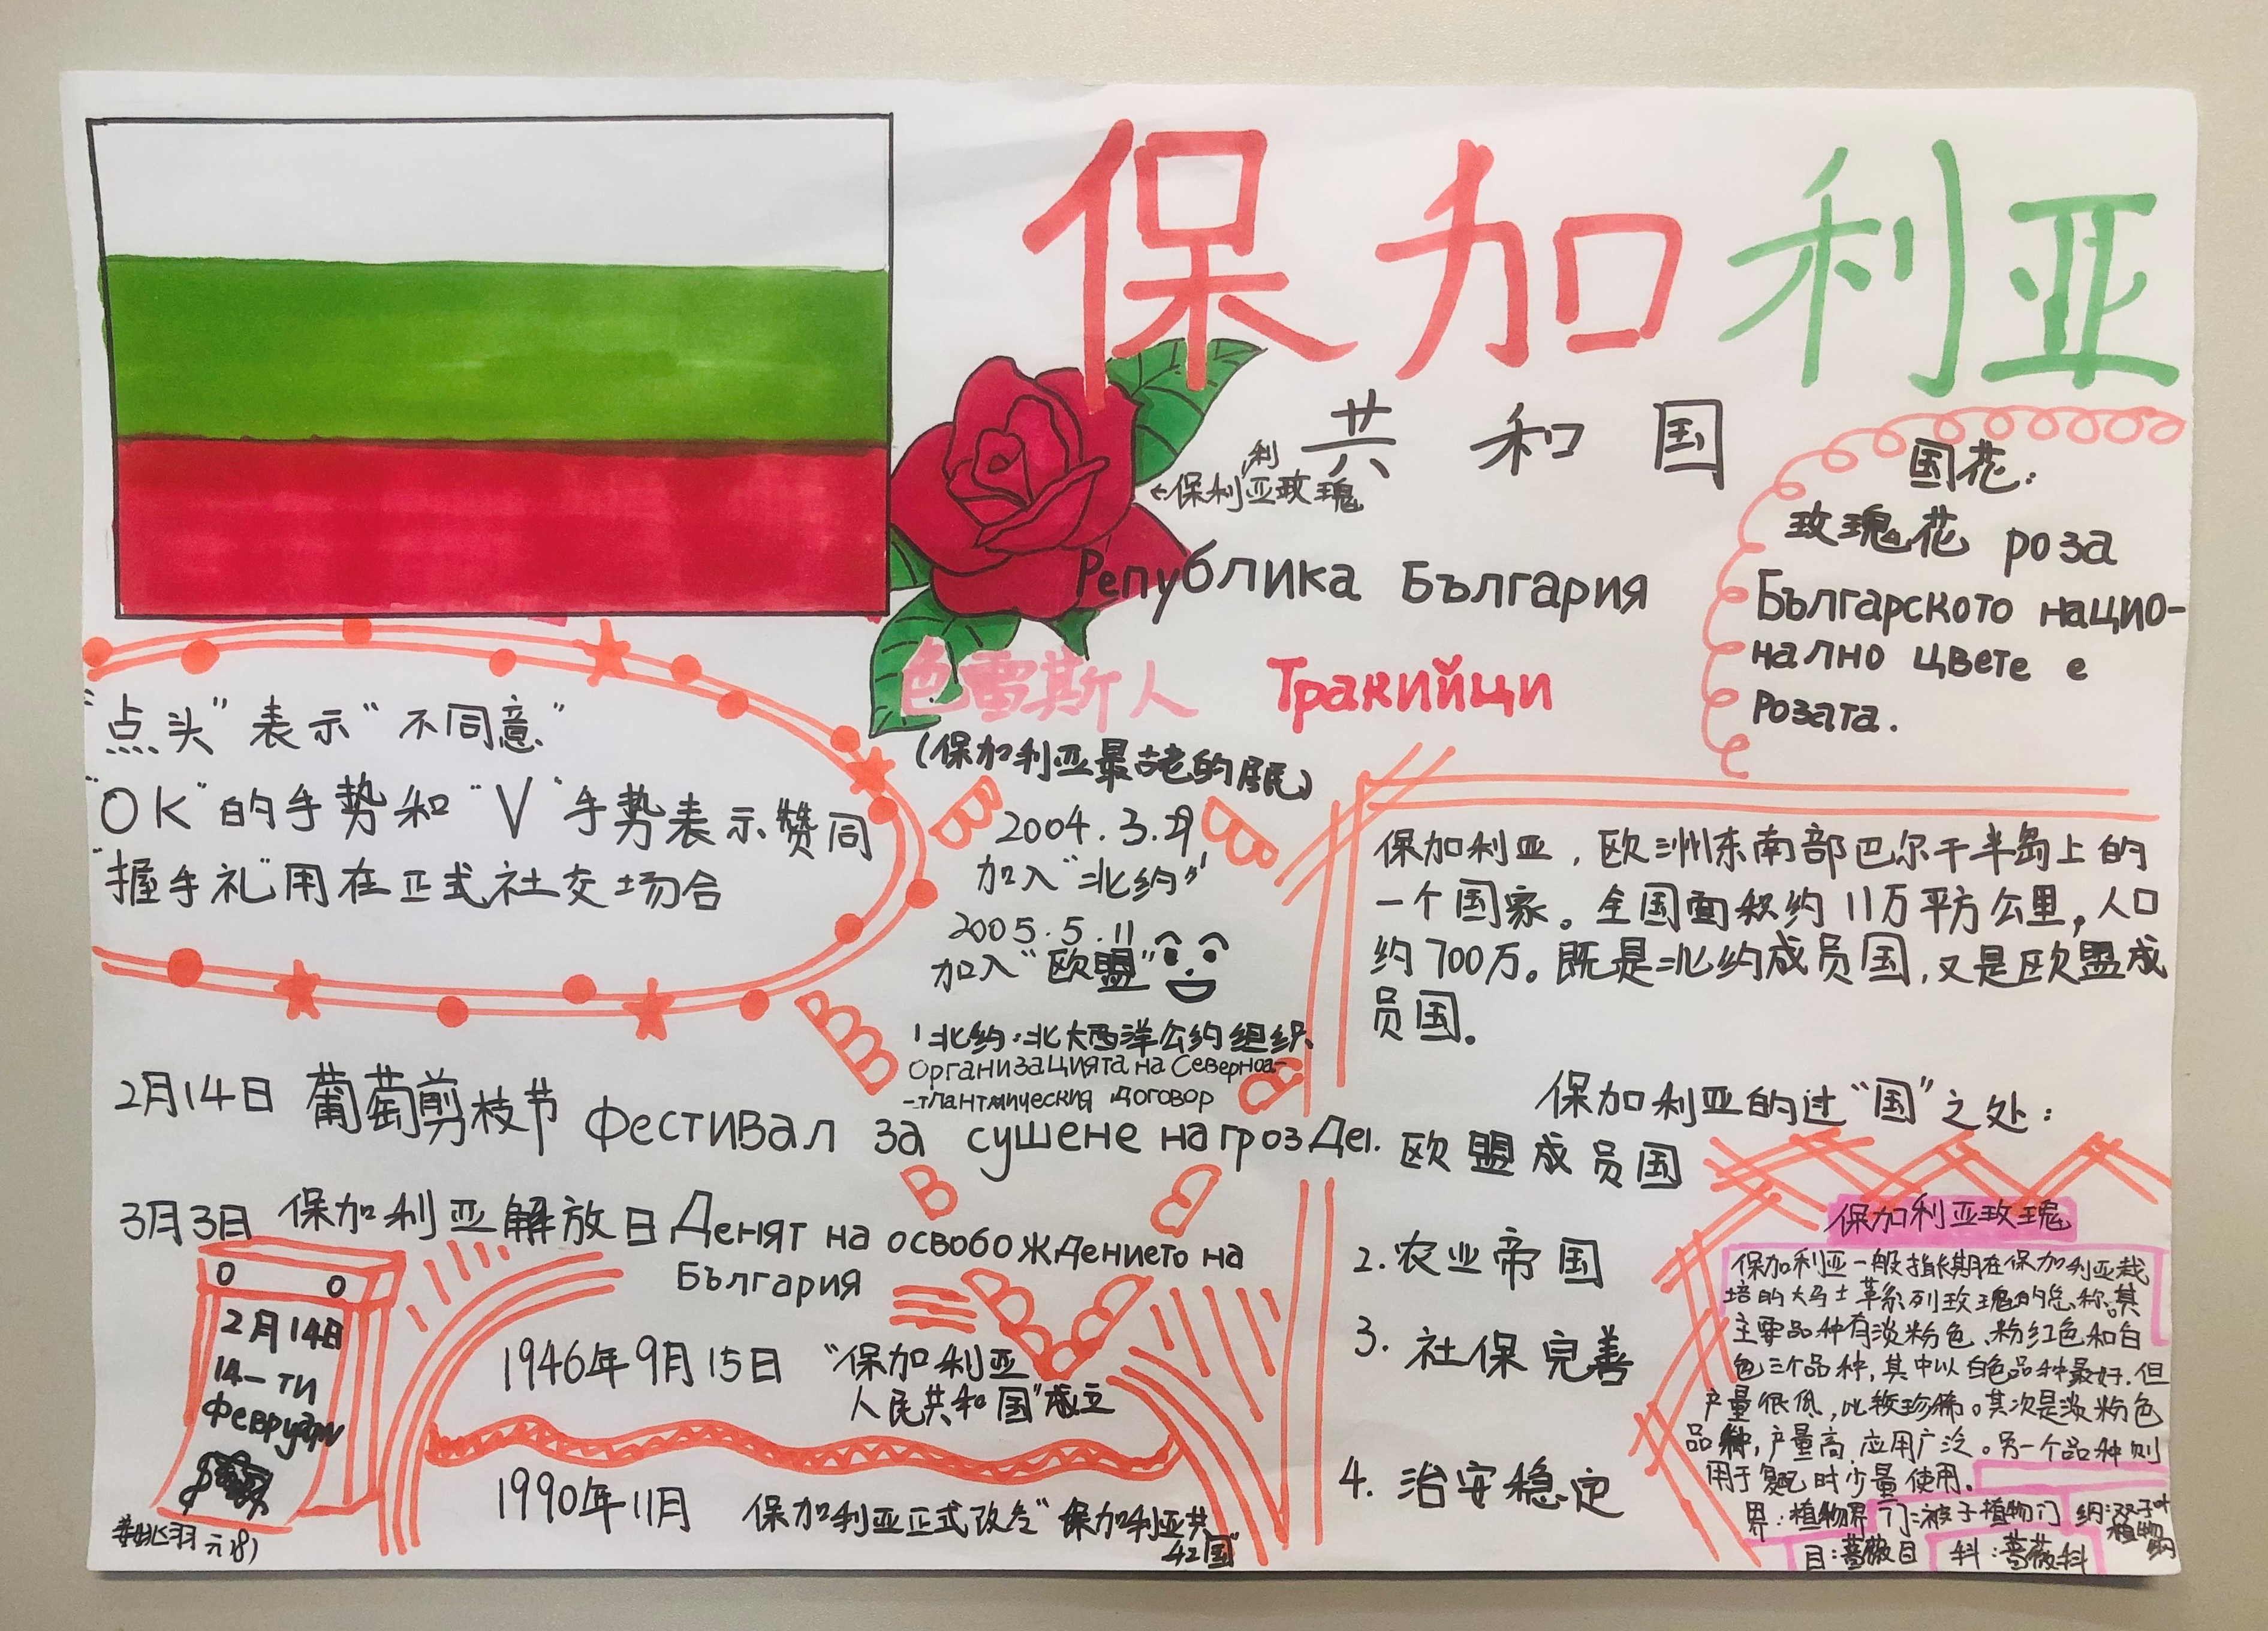 保加利亚
共和国
利
←保利亚玫瑰
Република България
国花:
玫瑰花 роза
Българското нацио-
нално цвете е
розата.
色雷斯人 Тракийци
(保加利亚最古老的居民)
"点头"表示"不同意"
"OK"的手势和"V"手势表示赞同
"握手礼"用在正式社交场合
2004.3.29
加入"北约"
2005.5.11
加入"欧盟"
北约:北大西洋公约组织
Организацията на Северноа-
договор
保加利亚,欧洲东南部巴尔干半岛上的
一个国家。全国面积约11万平方公里,人口
约700万。既是北约成员国,又是欧盟成
员国。
2月14日 葡萄剪枝节 Фестивал за сушене на грозде
3月3日 保加利亚解放日 Денят на освобождението на
България
2月14日
14-ти
Февруари
1946年9月15日 "保加利亚
人民共和国"成立
1990年11月 保加利亚正式改名"保加利亚共
和国"
保加利亚的过"国"之处:
1. 欧盟成员国
2. 农业帝国
3. 社保完善
4. 治安稳定
保加利亚玫瑰
保加利亚一般指长期在保加利亚栽
培的大马士革系列玫瑰的总称。其
主要品种有淡粉色、粉红色和白
色三个品种,其中以白色品种最好,但
产量很低,比较珍稀。其次是淡粉色
品种,产量高,应用广泛。另一个品种则
用于复配时少量使用。
界:植物界 门:被子植物门 纲:双子叶
植物纲
目:蔷薇目 科:蔷薇科